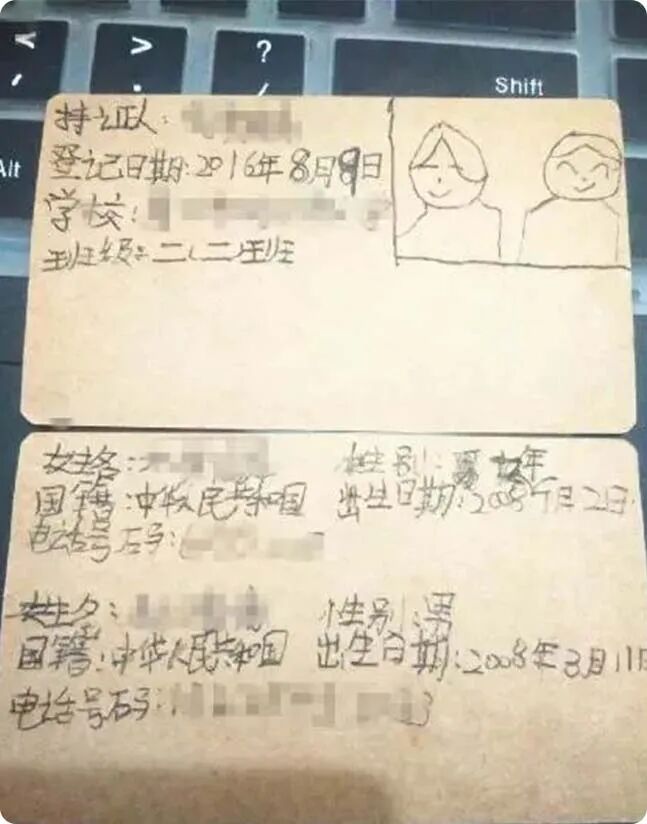 Shift
Alt
持证人:
登记日期:2016年8月9日
学校:
班级:二(二)班
姓名: 性别:女
国籍:中华人民共和国 出生日期:2008年 月2日
电话号码:
姓名: 性别:男
国籍:中华人民共和国 出生日期:2008年3月11日
电话号码: 3